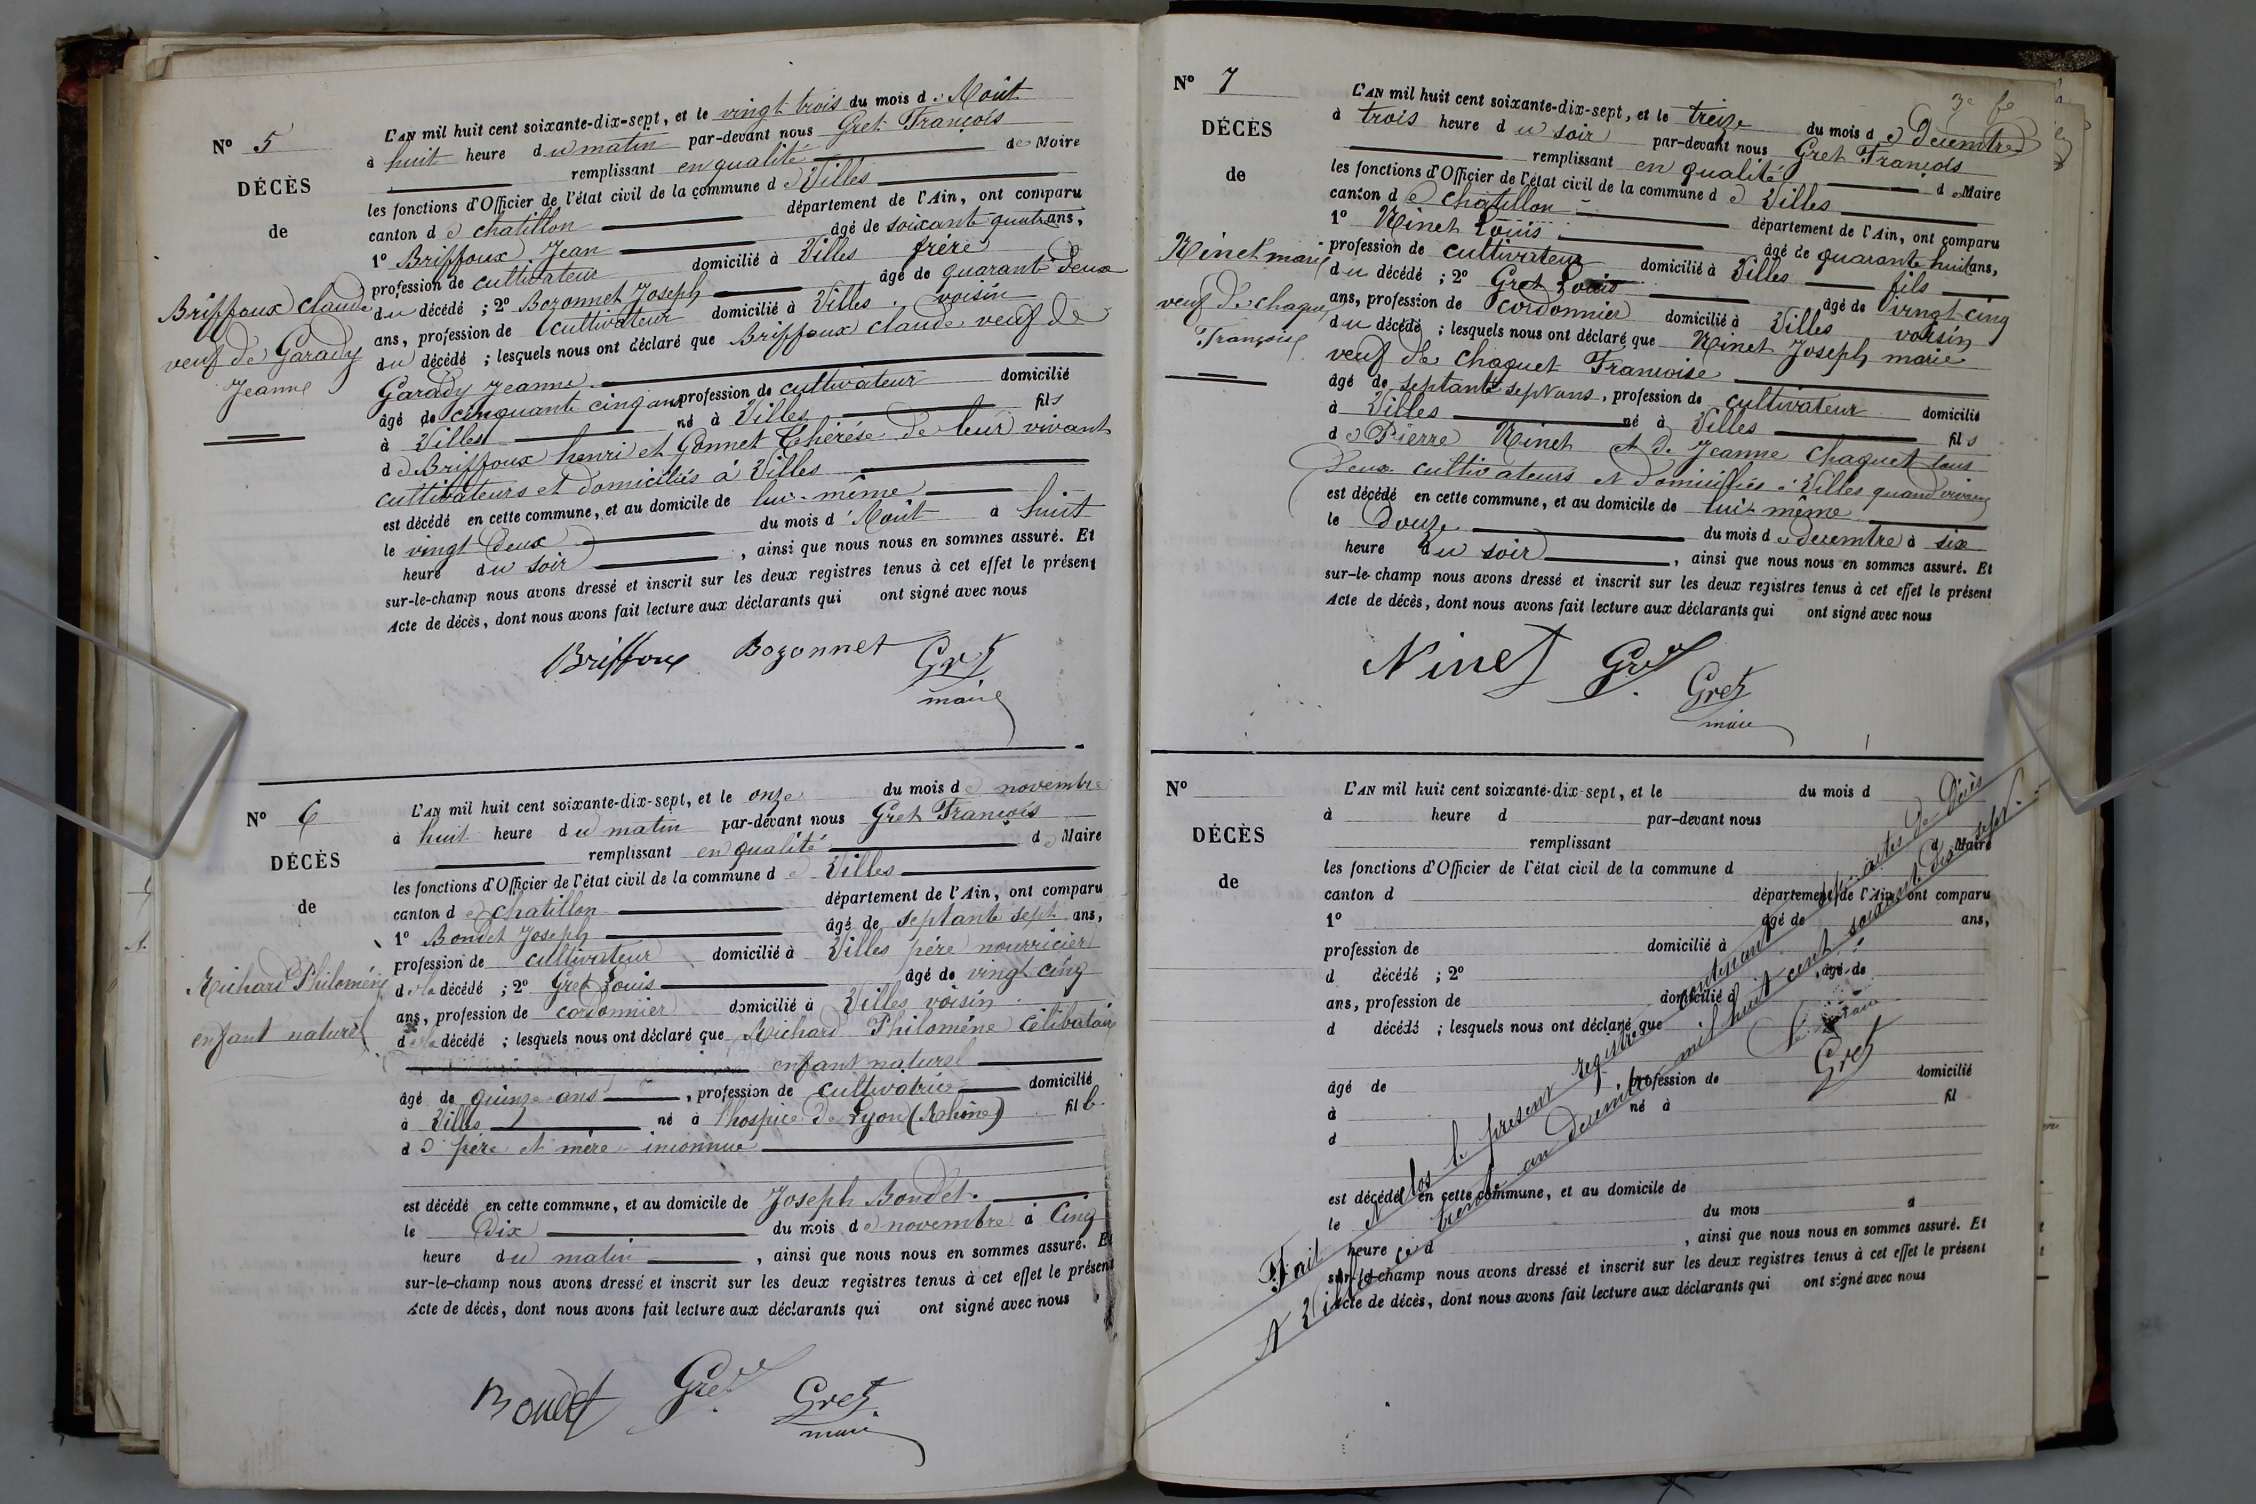 N° 5
DÉCÈS
de
Briffoux Claude
veuf de Garady
Jeanne
L'AN mil huit cent soixante-dix-sept, et le vingt trois du mois d'Août
à huit heure du matin par-devant nous Gret François
remplissant en qualité de Maire
les fonctions d'Officier de l'état civil de la commune de Villes
canton de chatillon département de l'Ain, ont comparu
1° Briffoux Jean âgé de soixante quatre ans,
profession de cultivateur domicilié à Villes frère
du décédé ; 2° Bozonnet Joseph âgé de quarante deux
ans, profession de cultivateur domicilié à Villes voisin
du décédé ; lesquels nous ont déclaré que Briffoux claude veuf de
Garady Jeanne
âgé de cinquante cinq ans profession de cultivateur domicilié
à Villes né à Villes fils
de Briffoux henri et Gonnet Thérèse de leur vivant
cultivateurs et domiciliés à Villes
est décédé en cette commune, et au domicile de lui-même
le vingt deux du mois d'Août à huit
heure du soir , ainsi que nous nous en sommes assuré. Et
sur-le-champ nous avons dressé et inscrit sur les deux registres tenus à cet effet le présent
Acte de décès, dont nous avons fait lecture aux déclarants qui ont signé avec nous
Briffoux Bozonnet Gret
maire
N° 6
DÉCÈS
de
Richard Philomène
enfant naturel
L'AN mil huit cent soixante-dix-sept, et le onze du mois de novembre
à huit heure du matin par-devant nous Gret François
remplissant en qualité de Maire
les fonctions d'Officier de l'état civil de la commune de Villes
canton de chatillon département de l'Ain, ont comparu
1° Bondet Joseph âgé de septante sept ans,
profession de cultivateur domicilié à Villes père nourricier
de la décédé ; 2° Gret Louis âgé de vingt cinq
ans, profession de cordonnier domicilié à Villes voisin
de la décédé ; lesquels nous ont déclaré que Richard Philomène Célibataire
enfant naturel
âgé de quinze ans , profession de cultivatrice domicilié
à Villes né à l'hospice de Lyon (Rhône) fille
de père et mère inconnue
est décédé en cette commune, et au domicile de Joseph Bondet.
le Dix du mois de novembre à Cinq
heure du matin , ainsi que nous nous en sommes assuré. Et
sur-le-champ nous avons dressé et inscrit sur les deux registres tenus à cet effet le présent
Acte de décès, dont nous avons fait lecture aux déclarants qui ont signé avec nous
Bondet Gret Gret
maire
3e fe
N° 7
DÉCÈS
de
Ninet marie
veuf de chaquet
Françoise
L'AN mil huit cent soixante-dix-sept, et le treize du mois de decembre
à trois heure du soir par-devant nous Gret François
remplissant en qualité de Maire
les fonctions d'Officier de l'état civil de la commune de Villes
canton de chatillon département de l'Ain, ont comparu
1° Ninet Louis âgé de quarante huit ans,
profession de cultivateur domicilié à Villes fils
du décédé ; 2° Gret Louis âgé de vingt cinq
ans, profession de cordonnier domicilié à Villes voisin
du décédé ; lesquels nous ont déclaré que Ninet Joseph marie
veuf de chaquet Francoise
âgé de septante sept ans, profession de cultivateur domicilié
à Villes né à Villes fils
de Pierre Ninet et de Jeanne Chaquet tous
Deux cultivateurs et domiciliés à Villes quand vivans
est décédé en cette commune, et au domicile de lui-même
le Douze du mois de decembre à six
heure du soir , ainsi que nous nous en sommes assuré. Et
sur-le-champ nous avons dressé et inscrit sur les deux registres tenus à cet effet le présent
Acte de décès, dont nous avons fait lecture aux déclarants qui ont signé avec nous
Ninet Gret
Gret
maire
N°
DÉCÈS
de
L'AN mil huit cent soixante-dix-sept, et le du mois d
à heure d par-devant nous
remplissant d Maire
les fonctions d'Officier de l'état civil de la commune d
canton d département de l'Ain, ont comparu
1° âgé de ans,
profession de domicilié à
d décédé ; 2° âgé de
ans, profession de domicilié à
d décédé ; lesquels nous ont déclaré que
âgé de , profession de domicilié
à né à fil
d
est décédé en cette commune, et au domicile de
le du mois à
heure d , ainsi que nous nous en sommes assuré. Et
sur-le-champ nous avons dressé et inscrit sur les deux registres tenus à cet effet le présent
Acte de décès, dont nous avons fait lecture aux déclarants qui ont signé avec nous
Fait et clos le present registre contenant sept actes de Décès
A Villes ce trente un Decembre mil huit cent soixante Dix sept.
Gret